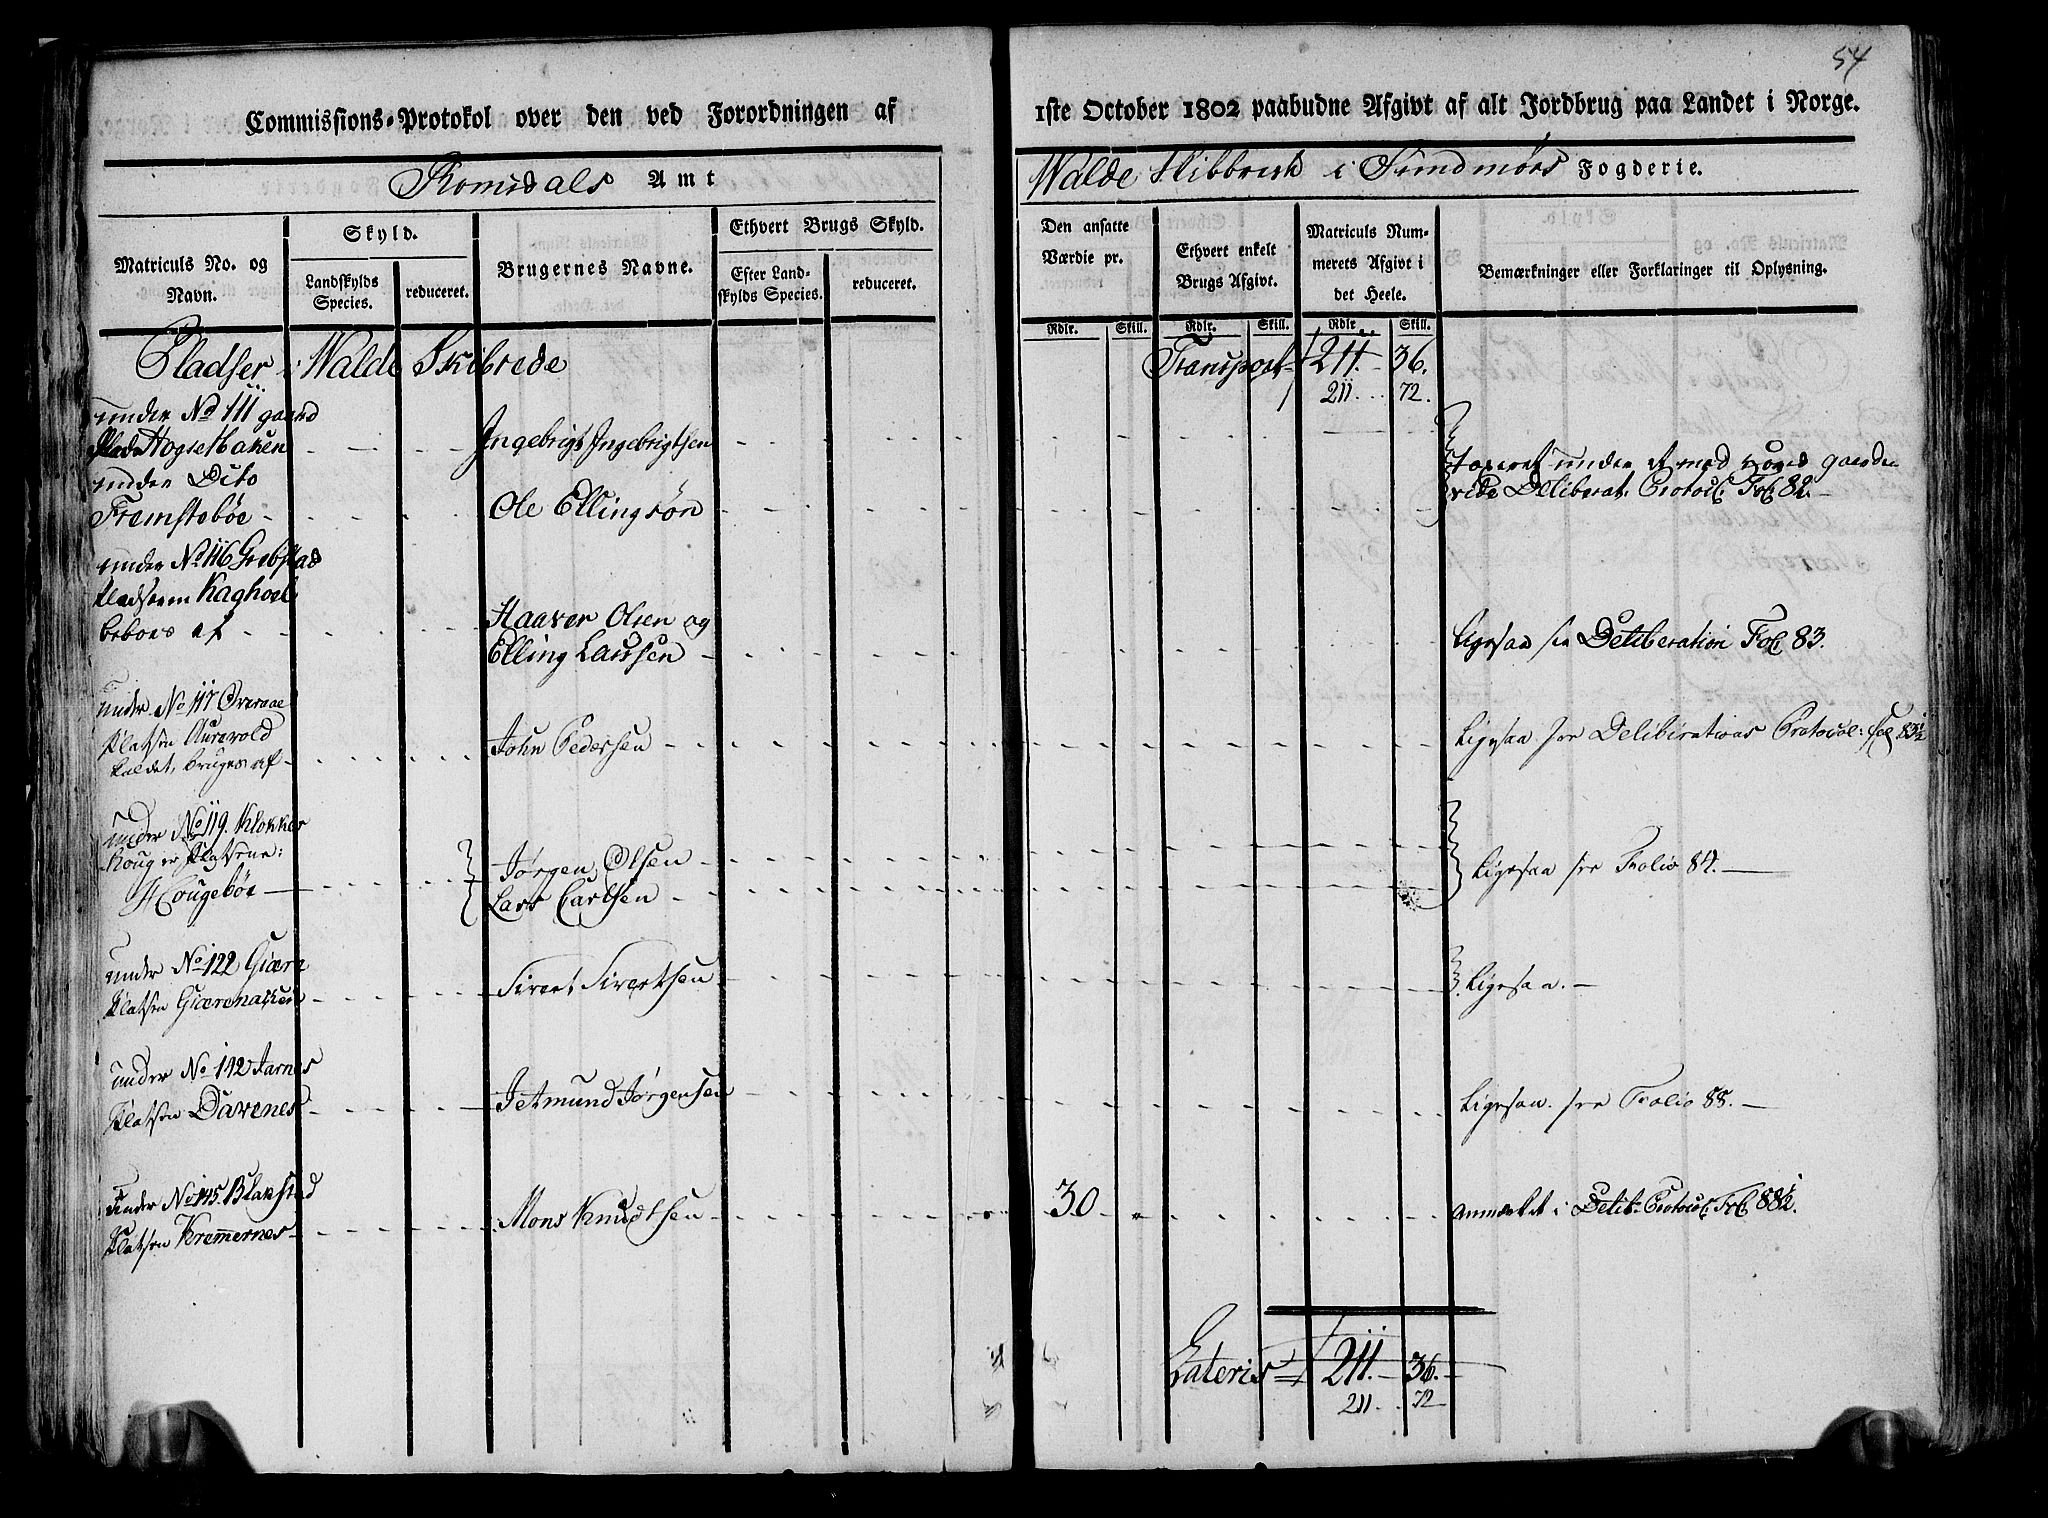 54
Commissions-Protokol over den ved Forordningen af 1ste October 1802 paabudne Afgivt af alt Jordbrug paa Landet i Norge.
Romsdals Amt
Walde Skibbrede i Sundmørs Fogderie.
Matriculs No. og Navn.
Skyld.
Landskylds Species.
reduceret.
Brugernes Navne.
Ethvert Brugs Skyld.
Efter Landskylds Species.
reduceret.
Den ansatte Værdie pr.
Ethvert enkelt Brugs Afgivt.
Matriculs Nummerets Afgivt i det Heele.
Bemærkninger eller Forklaringer til Oplysning.
Rdlr. Skill. Rdlr. Skill. Rdlr. Skill.
Pladser i Walde Skibrede
Transport 211. 36.
211 72.
under No 111 gaard
Hogsethaken Ingebrigt Ingebrigtsen
under Dito
Fremstebøe Ole Ellingsøn
Taxeret under et med hoved gaarden
vide Deliberat: Protocl. Fol. 82.
under No 116 Grebstad
Pladsen Kaghoel
beboes af Haaver Olsen og
Elling Larssen Ligesaa se Deliberation Fol. 83.
under No 117
Platsen Aurevold
kaldet, bruges af John Pedersen Ligesaa see Deliberations Protocol: fol 83½
under No 119. Klokker
Houg er Platsene:
Hougebøe Jørgen Olsen
Lars Carlsen Ligesaa see Folio 84.
under No 122 Giære
Platsen Giærenakken Sivert Sivertsen Ligesaa.
under No 142 Jarnes
Platsen Davenes Jetmund Jørgensen Ligesaa. see Folio 88.
under No 145. Blakstad
Platsen Kremmernes Mons Knudtsen 30 anmerket i Delib: Protocl. Fol. 88½.
Lateris 211. 36.
211. 72